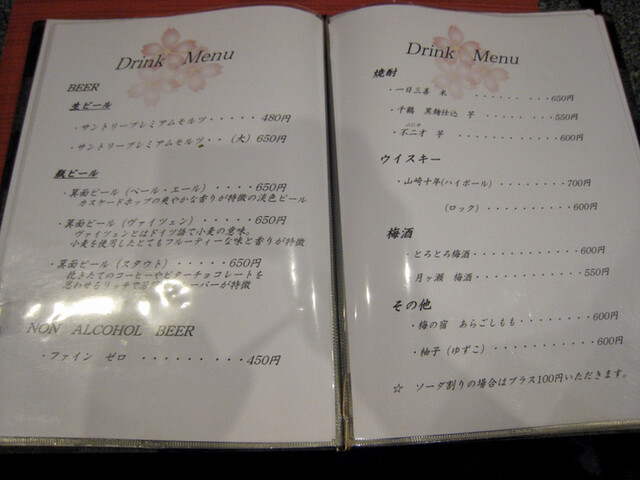 Drink Menu
BEER
生ビール
・サントリープレミアムモルツ・・・・・480円
・サントリープレミアムモルツ・・(大) 650円
瓶ビール
・箕面ビール (ペール・エール) ・・・・650円
カスケードホップの爽やかな香りが特徴の淡色ビール
・箕面ビール (ヴァイツェン) ・・・・・650円
ヴァイツェンとはドイツ語で小麦の意味。
小麦を使用したとてもフルーティーな味と香りが特徴
・箕面ビール (スタウト) ・・・・・650円
挽きたてのコーヒーやビターチョコレートを
思わせるリッチで
バーが特徴
NON ALCOHOL BEER
・ファイン ゼロ ・・・・・・・・・450円
Drink Menu
焼酎
・一日三善 米 ・・・・・・ ・・・650円
・千鶴 黒麹仕込 芋 ・・・・・ ・・・550円
・不二才 芋 ・・・・・・・・・・・600円
ウイスキー
・山崎十年(ハイボール) ・・・・・・・700円
(ロック) ・・・・・・・・・600円
梅酒
・とろとろ梅酒・・・・・・・・・・・600円
・月ヶ瀬 梅酒・・・・・・・・・・・550円
その他
・梅の宿 あらごしもも・・・・・・・・600円
・柚子 (ゆずこ) ・・・・・・・・・・・600円
☆ ソーダ割りの場合はプラス100円いただきます。